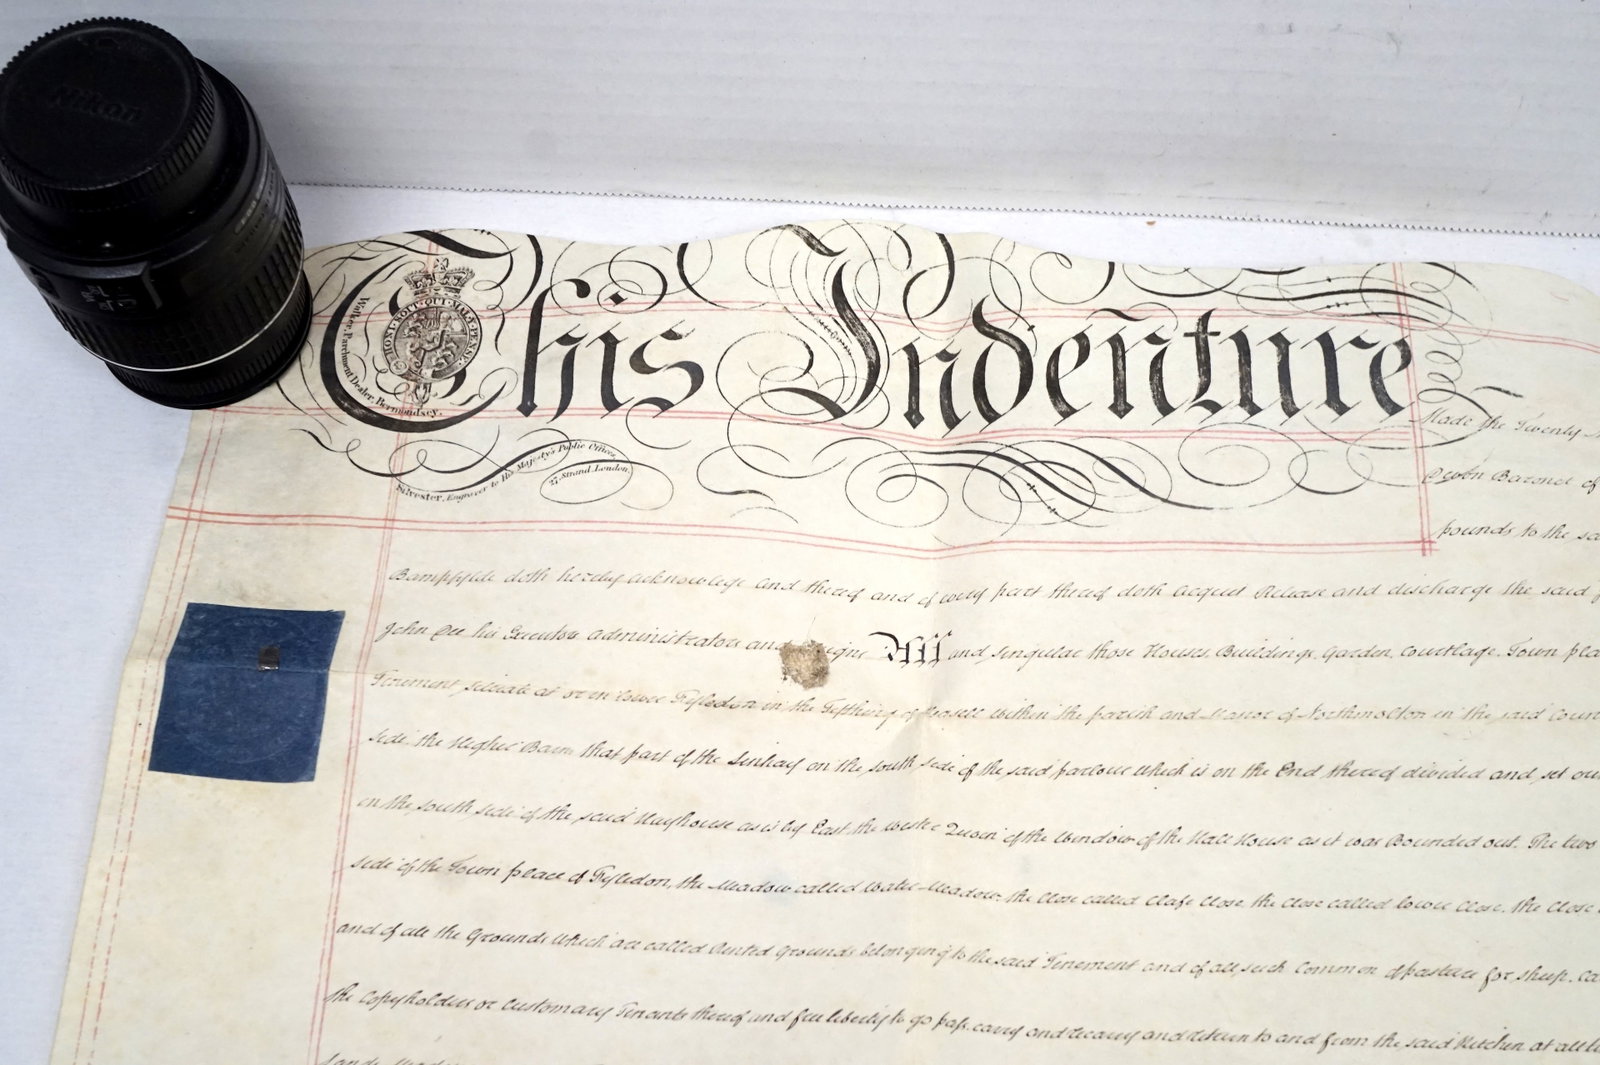 Nikon
This Indenture
HONI·SOIT·QUI·MAL·Y·PENSE·
Walker, Parchment Dealer, Bermondsey.
Silvester, Engraver to His Majesty's Public Offices
27 Strand, London.
Made the Twenty
Baronet of
pounds to the
Bampfylde doth hereby acknowledge and thereof and of every part thereof doth acquit Release and discharge the said
John his Executors administrators and All and singular those Houses, Buildings, Garden, Courtlage, Town
Tenement situate at or in lower in the Tythling of within the parish and Manor of Northmolton in the said
side the Higher Barn that part of the Linhay on the south side of the said parlour which is on the End thereof divided and set
on the south side of the said as is by East the of the Window of the Hall House as it was Bounded out. The two
side of the Town place of the Meadow called Water Meadow. the Close called Close the Close called lower Close. the Close
and of all the Grounds which are called Rented Grounds belonging to the said Tenement and of all such Common of pasture for sheep.
the Copyholders or Customary Tenants thereof and free liberty to go pass carry and recarry and return to and from the said Kitchen at all